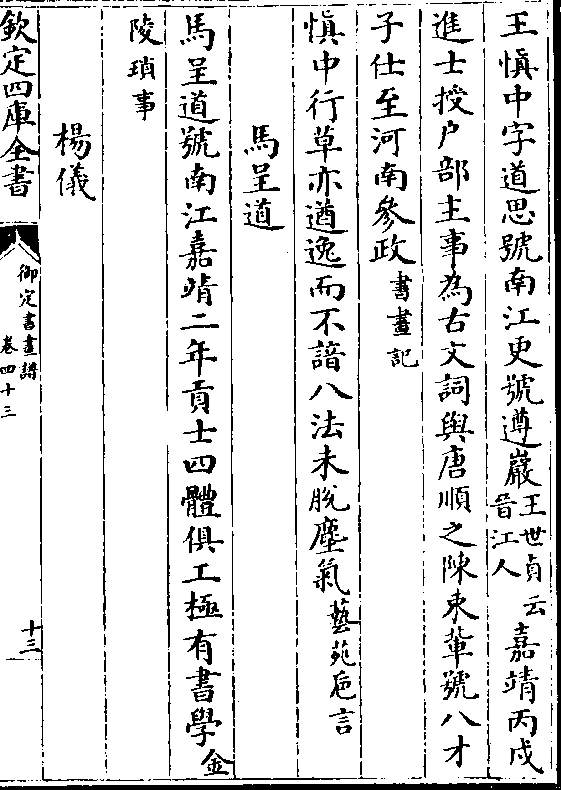 王慎中字道思號南江更號遵巖王世貞云晉江人嘉靖丙戌
進士授户部主事為古文詞與唐順之陳東軰號八才
子仕至河南參政書畫記
慎中行草亦遒逸而不諳八法未脫塵氣藝苑巵言
馬呈道
馬呈道號南江嘉靖二年貢士四體俱工極有書學金
陵瑣事
楊儀
欽定四庫全書
御定書畫譜
卷四十三
十三